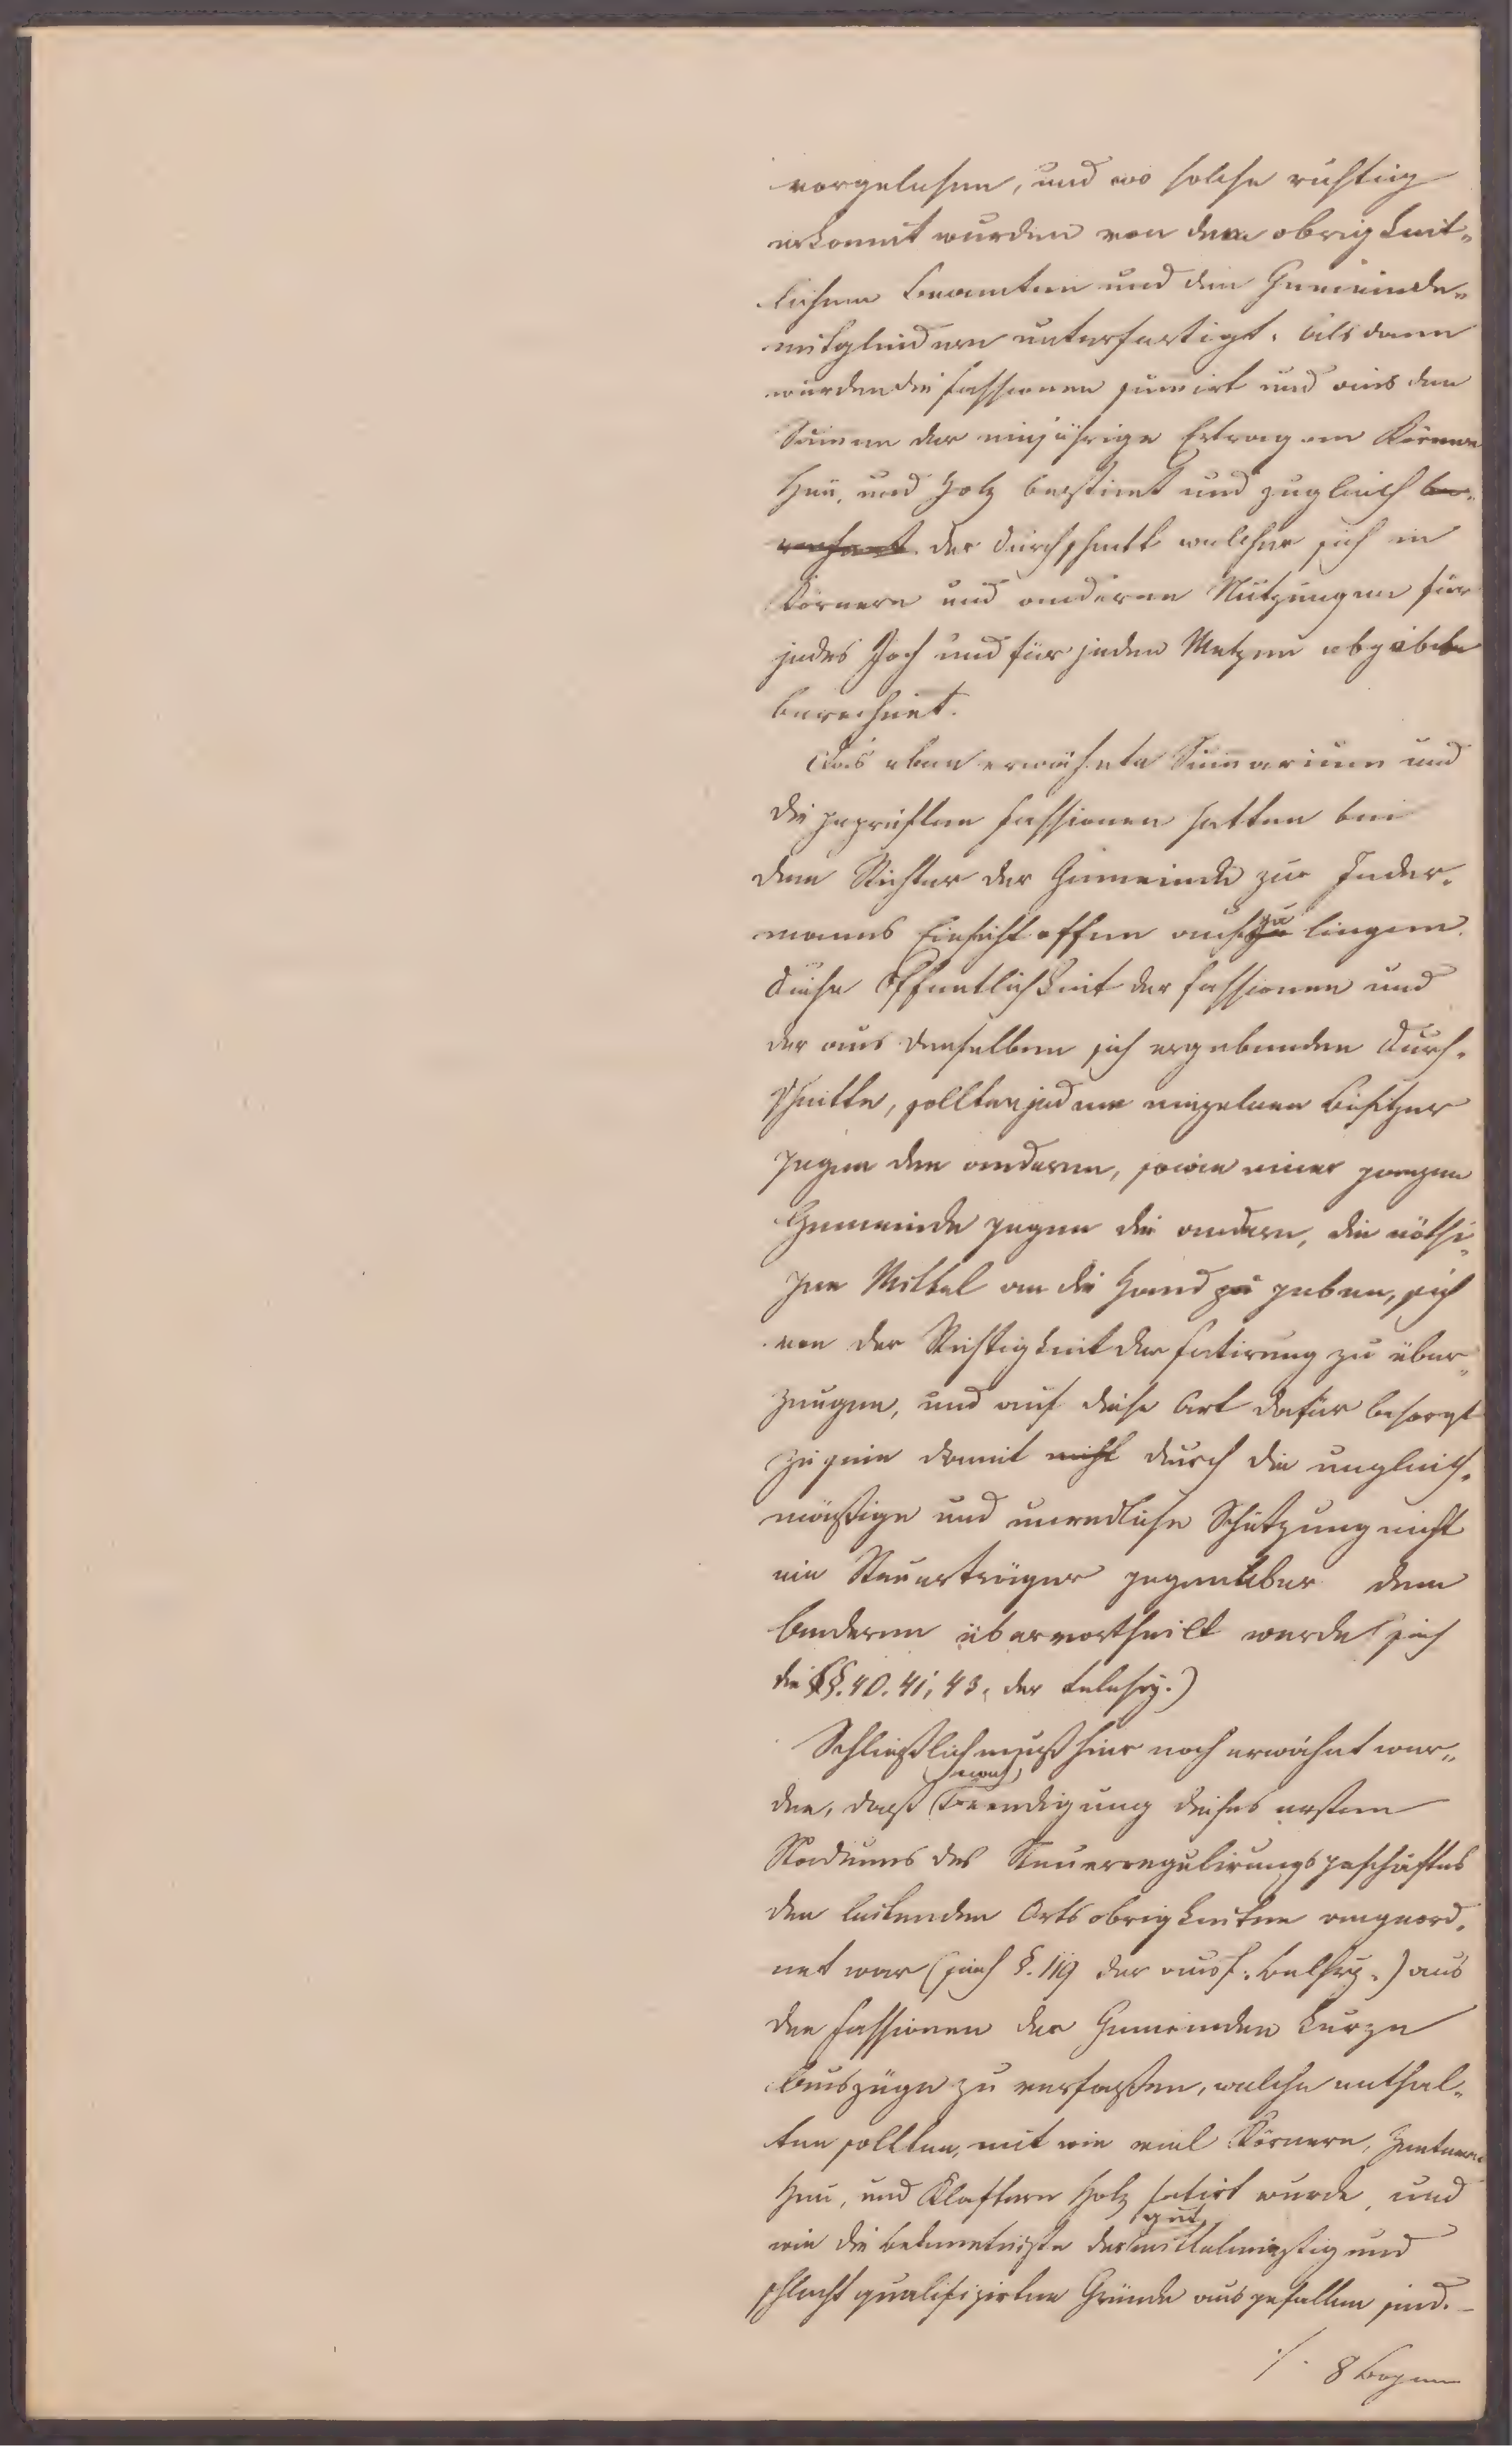 vorgelesen, und wo solche richtig
erkannt wurden von dem obrigkeit„
lichen Beamten und den Gemeinde„
mitgliedern unterfertigt. Als dann
wurden die Fassionen sumirt und aus den
Summen der einjährige Ertrag an Körnern
Heu, und Holz bestimt und zugleich be„
rechnet der Durchschnitt welcher sich in
Körnern und anderen Nutzungen für
jedes Joch und für jeden Metzen abgäbe
berechnet.
Das eben erwähnte Sumarium und
die geprüften Fassionen hatten bei
dem Richter der Gemeinde zur Jeder„
manns Einsicht offen auch zu liegen.
Diese Öffentlichkeit der Fassionen und
der aus denselben sich ergebenden Durch„
schnitte, sollten jedem einzelnen Besitzer
gegen den anderen, sowie einer ganzen
Gemeinde gegen die andern, die nöthi„
gen Mittel an die Hand zu geben, sich
von der Richtigkeit der Fatirung zu über„
zeugen, und auf diese Art dafür besorgt
zu sein damit nicht durch die ungleich„
mäßige und unredliche Schätzung nicht
ein Steuerträger gegenüber dem
Anderen übervortheilt werde (sieh
die §§. 40. 41, 43, der Belehrg.)
Schließlich muß hier noch erwähnt wer„
den, daß nach Beendigung dieses ersten
Stadiums des Steuerregulirungsgeschäftes
den leitenden Ortsobrigkeiten angeord„
net war (sieh §. 119 der ausf. Belehrg.) aus
den Fassionen der Gemeinden kurze
Auszüge zu verfaßen, welche enthal„
ten sollten, mit wie viel Körnern, Zentnern
Heu, und Klaftern Holz fatirt wurde, und
wie die Bekenntniße der gut, mittelmäßig und
schlecht qualifizirten Gründe ausgefallen sind. —
./. 8 Bogen